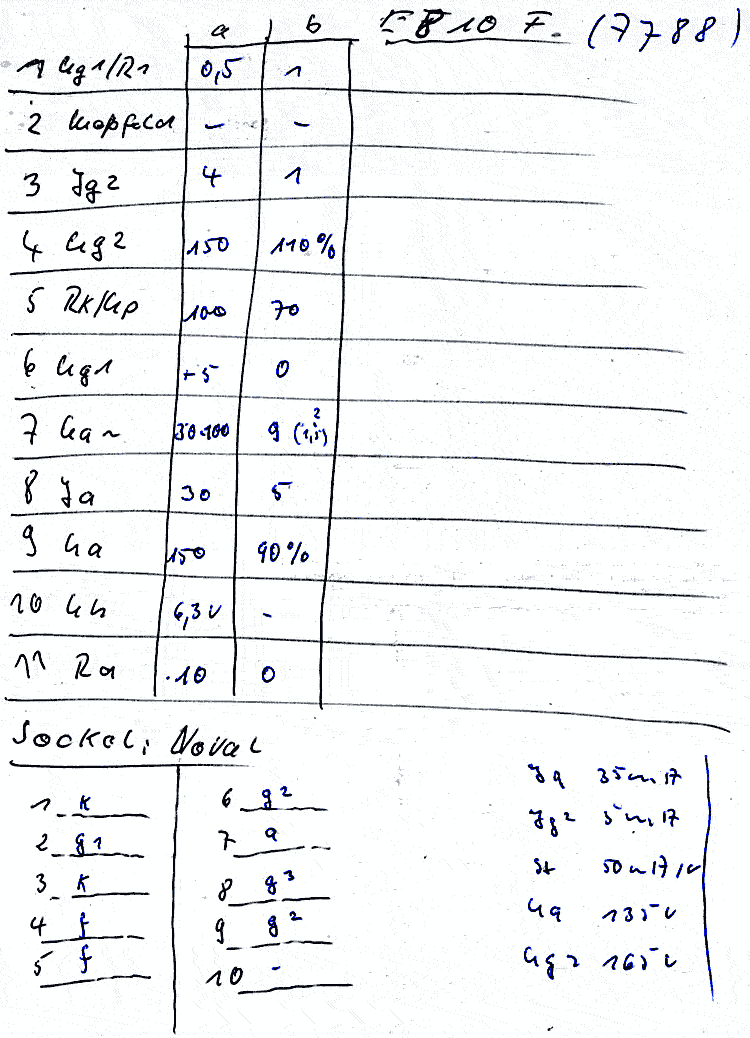 a b E810F. (7788)
1 Ug1/R1 0,5 1
2 - -
3 Ig2 4 1
4 Ug2 150 110%
5 RK/Up 100 70
6 Ug1 +5 0
7 Ua~ 30.100 9 (1,5) 2
8 Ia 30 5
9 Ua 150 90%
10 Uh 6,3V -
11 Ra .10 0
Sockel: Noval
1 K
2 g1
3 K
4 f
5 f
6 g2
7 a
8 g3
9 g2
10 -
Ia 35mA
Ig2 5mA
St 50mA/V
Ua 135V
Ug2 165V